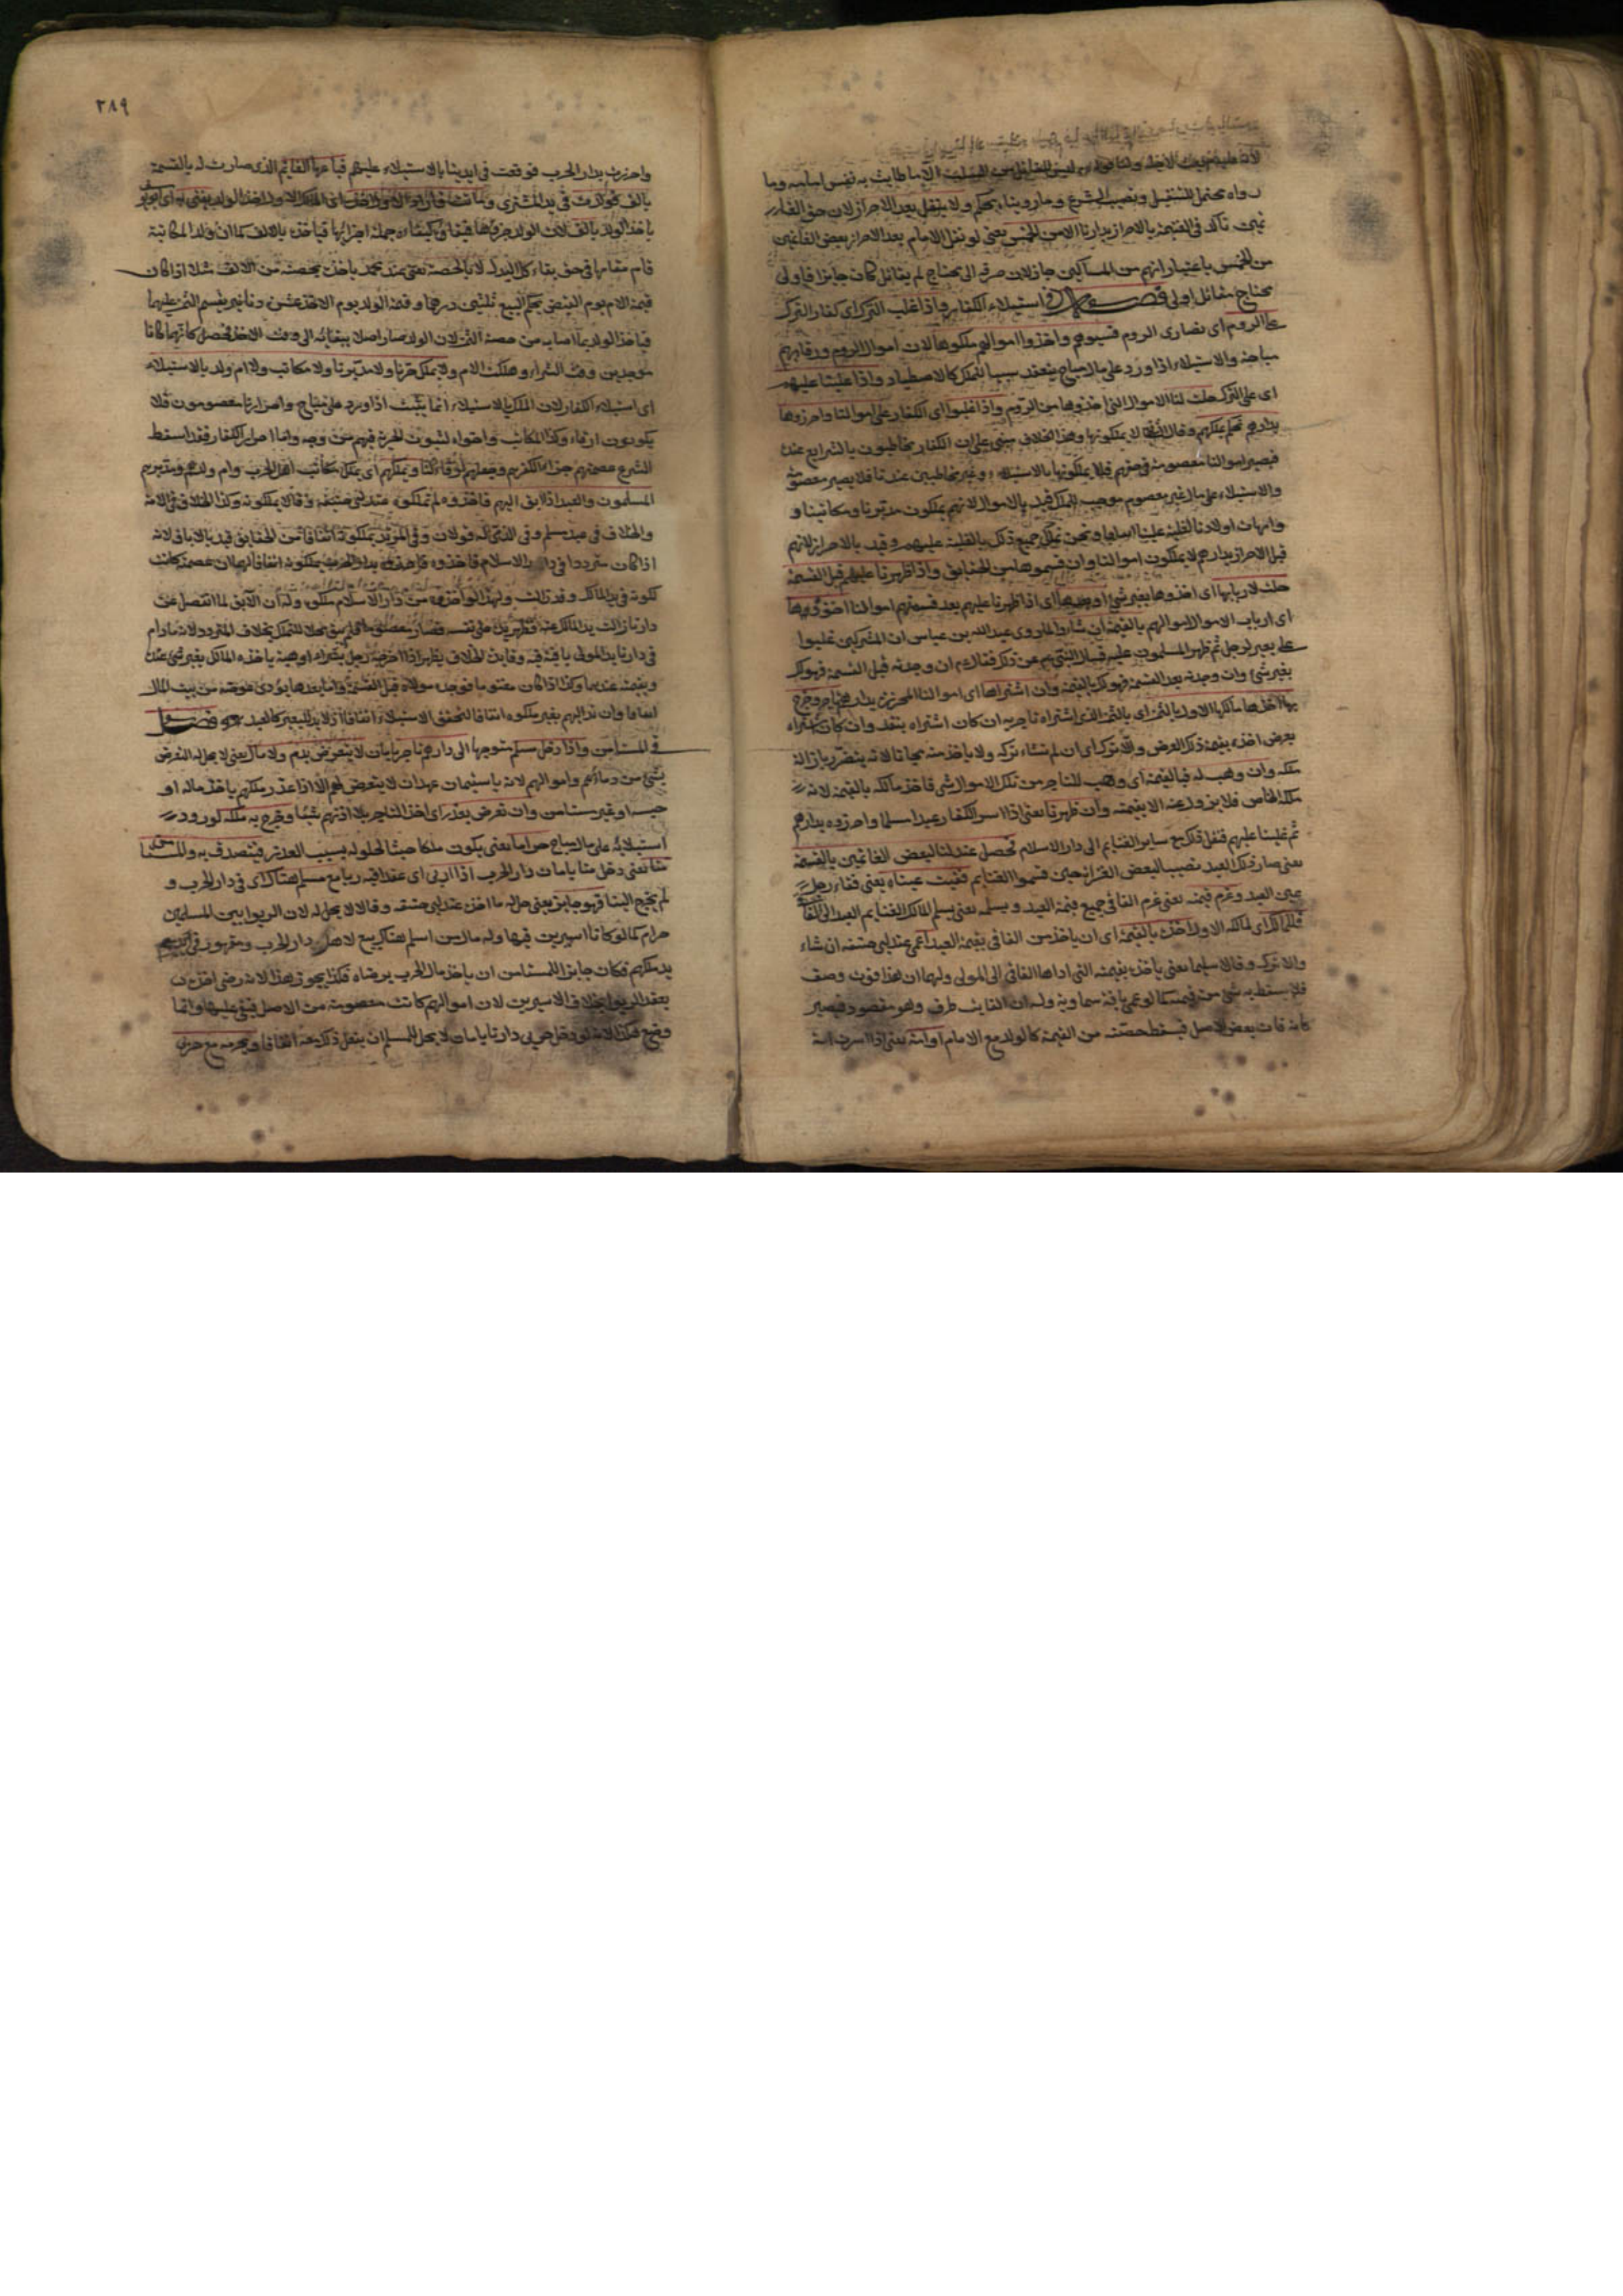 ٢٨٩
الا ما طابت به نفس امامه وما
رواه يحتمل التنفيل ونصب الشرع وما رويناه محكم ولا ينفل بعد الاحراز لان حق الغير
تأكد في الغنيمة بالاحراز بدارنا الا من الخمس يعنى لو نفل الامام بعد الاحراز بعض الغانمين
من الخمس باعتبار انهم من المساكين جاز لان صرفه الى محتاج لم يقاتل كان جايزا فاولى
محتاج مقاتل اولى فصل في استيلاء الكفار واذا غلب الترك اى كفار الترك
على الروم اى نصارى الروم فسبوهم واخذوا اموالهم ملكوها لان اموال الروم ورقابهم
مباحة والاستيلاء اذا ورد على مال مباح ينعقد سببا للملك كالاصطياد واذا غلبنا عليهم
اى على الترك حلت لنا الاموال التى اخذوها من الروم واذا غلبوا اى الكفار على اموالنا واحرزوها
بدارهم نحكم بملكهم وقال لا يملكونها وهذا الخلاف مبنى على ان الكفار مخاطبون بالشرايع عنده
فيصير اموالنا معصومة في حقهم فلا يملكونها بالاستيلاء وغير مخاطبين عندنا فلا يصير معصومة
والاستيلاء على مال غير معصوم موجب للملك قيد بالاموال لانهم لا يملكون مدبرنا ومكاتبنا و
وامهات اولادنا لغلبة علينا ونحن نملك جميع ذلك بالغلبة عليهم وقيد بالاحراز لانهم
قبل الاحراز بدارهم لا يملكون اموالنا وان قسموها من الحقايق واذا ظهرنا عليهم قبل القسمة
حلت لاربابها اى اخذوها بغير شئ او بعدها اى اذا ظهرنا عليهم بعد قسمتهم اموالنا اخذوها
اى ارباب الاموال اموالهم بالقيمة ان شاروا لما روى عبد الله بن عباس ان المشركين غلبوا
على بعير لرجل ثم ظهر المسلمون عليه فسأل النبى عم عن ذلك فقال عم ان وجدته قبل القسمة فهو لك
بغير شئ وان وجدته بعد القسمة فهو لك بالقيمة وان اشتراها اى اموالنا المحرزة بدارهم تاجر وخرج
بها اخذها مالكها الاول بالثمن اى بالثمن الذى اشتراه تاجر به ان كان اشتراه بنقد وان كان اشتراه
بعرض اخذه بقيمة ذلك العرض والا تركه اى ان لم يشاء تركه ولا ياخذ منه مجانا لانه يتضرر بازالة
ملكه وان وهب له فبالقيمة اى وهب للتاجر من تلك الاموال شئ فاخذ مالكه بالقيمة لانه
ملكه الخاص فلا يزول عنه الا بقيمته وان ظهرنا يعنى اذا اسر الكفار عبدا مسلما واحرزوه بدارهم
ثم غلبنا عليهم فنقل ذلك مع ساير الغنايم الى دار الاسلام تحصل عندنا لبعض الغانمين بالقسمة
يعنى صار ذلك العبد نصيبا لبعض الغزاة حين قسموا الغنايم ففقئت عيناه يعنى فقاء رجل
عينى العبد وغرم قيمته يعنى غرم الفاقى جميع قيمة العبد ويسلمه يعنى يسلم للمالك الغنايم العبد الى الفاقى
فللمالك اى لمالكه الاول اخذه بالقيمة اى ان ياخذ من الفاقى بقيمة العبد اعمى عند ابى حنيفة ان شاء
والا تركه وقالا سليما يعنى ياخذه بقيمته التى اداها الفاقى الى المولى ولهما ان هذا فوت وصف
فلا يسقط به شئ من قيمته كما لو عمى بافة سماوية وله ان الفايت طرف وهو مقصود فيصير
كانه فات بعض الاصل فيسقط حصته من القيمة كالولد مع الام او امة يعنى اذا اسرت امة
واحرزت بدار الحرب فوقعت في ايدينا بالاستيلاء عليهم فباعها الغانم الذى صارت له بالقسمة
بالف فولدت في يد المشترى
ياخذ الولد بالف لان الولد جزؤها
قام مقامها في حق بقاء كل البدل لا بالحصة يعنى عند محمد ياخذه بحصته من الالف مثلا اذا كان
قيمة الام يوم القبض بحكم البيع ثلثين درهما وقيمة الولد يوم الاخذ عشرة دنانير يقسم الثمن عليهما
فياخذ الولد بما اصابه من حصة الثمن لان الولد صار اصلا ببقائه الى وقت الاخذ فصار كانهما كانا
موجودين وقت الشراء وهلكت الام ولا يملك حرنا ولا مدبرنا ولا مكاتب ولا ام ولد بالاستيلاء
اى استيلاء الكفار لان الملك بالاستيلاء انما يثبت اذا ورد على مباح واحرارنا معصومون فلا
يكونون ارقاء وكذا المكاتب واخواه لثبوت الحرية فيهم من وجه واما احرار الكفار فقد اسقط
الشرع عصمتهم جزاء لكفرهم وجعلهم ارقاء لنا ويملكهم اى يملك مكاتب اهل الحرب وام ولدهم ومدبرهم
المسلمون والعبد اذا ابق اليهم فاخذوه لم يملكوه عند ابى حنيفة وقالا يملكونه وكذا الخلاف في الامة
والخلاف في عبد مسلم وفي الذمى له قولان وفي المرتد يملكونه اتفاقا من الحقايق قيد بالاباق لانه
اذا كان مترددا في دار الاسلام فاخذوه بدار الحرب يملكونه اتفاقا لهما ان عصمته كانت
لكونه في يد المالك وقد زالت ولهذا لو اخذوه من دار الاسلام ملكوه وله ان الآبق لما انفصل عن
دارنا زالت يد المالك عنه فظهر يده على نفسه فصار معصوما فلم يبق محلا للتملك بخلاف المتردد لانه ما دام
في دارنا يد المولى باقية فيه وفايدة الخلاف يظهر اذا اخرجه رجل بشراء او هبة ياخذه المالك بغير شئ عنده
وبقيمته عندهما وكذا اذا كان مغنوما فوجده مولاه قبل القسمة واما بعدها يؤدى عوضه من بيت المال
اتفاقا وان ند اليهم بعير ملكوه اتفاقا لتحقق الاستيلاء اتفاقا اذ لا يد للبعير كالعبد فصل
في المستأمن واذا دخل مسلم متوجها الى دارهم تاجرا بامان لا يتعرض لدم ولا مال يعنى لا يحل له التعرض
بشئ من دمائهم واموالهم لانه باستيمان عهد ان لا يتعرض لهم الا اذا غدر ملكهم ياخذ ماله او
حبسه او غير مستامن وان تعرض بغدر اى اخذ التاجر بلا اذنهم شيئا وخرج به ملكه لورود
استيلائه على مال مباح حراما يعنى يكون ملكا خبيثا لحصوله بسبب الغدر فيتصدق به والمستأمن
منا يعنى دخل منا بامان دار الحرب اذا اربى اى عقد فيه ربا مع مسلم هناك اى في دار الحرب و
لم يخرج الينا فهو جايز يعنى حل له ما اخذ عند ابى حنيفة وقالا لا يحل له لان الربوا بين المسلمين
حرام كما لو كانا اسيرين فيها وله مال من اسلم هناك مع لاهل دار الحرب ومقهور في
يد ملكهم فكان جايزا للمستامن ان ياخذ مال الحرب برضاه فكذا يجوز هذا لانه رضى اخذه
بعقد الربوا بخلاف الاسيرين لان اموالهم كانت معصومة من الاصل فبقى عليها وانما
وضع لو دخل حربى دارنا بامان لا يحل للمسلم ان يفعل ذلك معه اتفاقا ويحرمه مع حربى